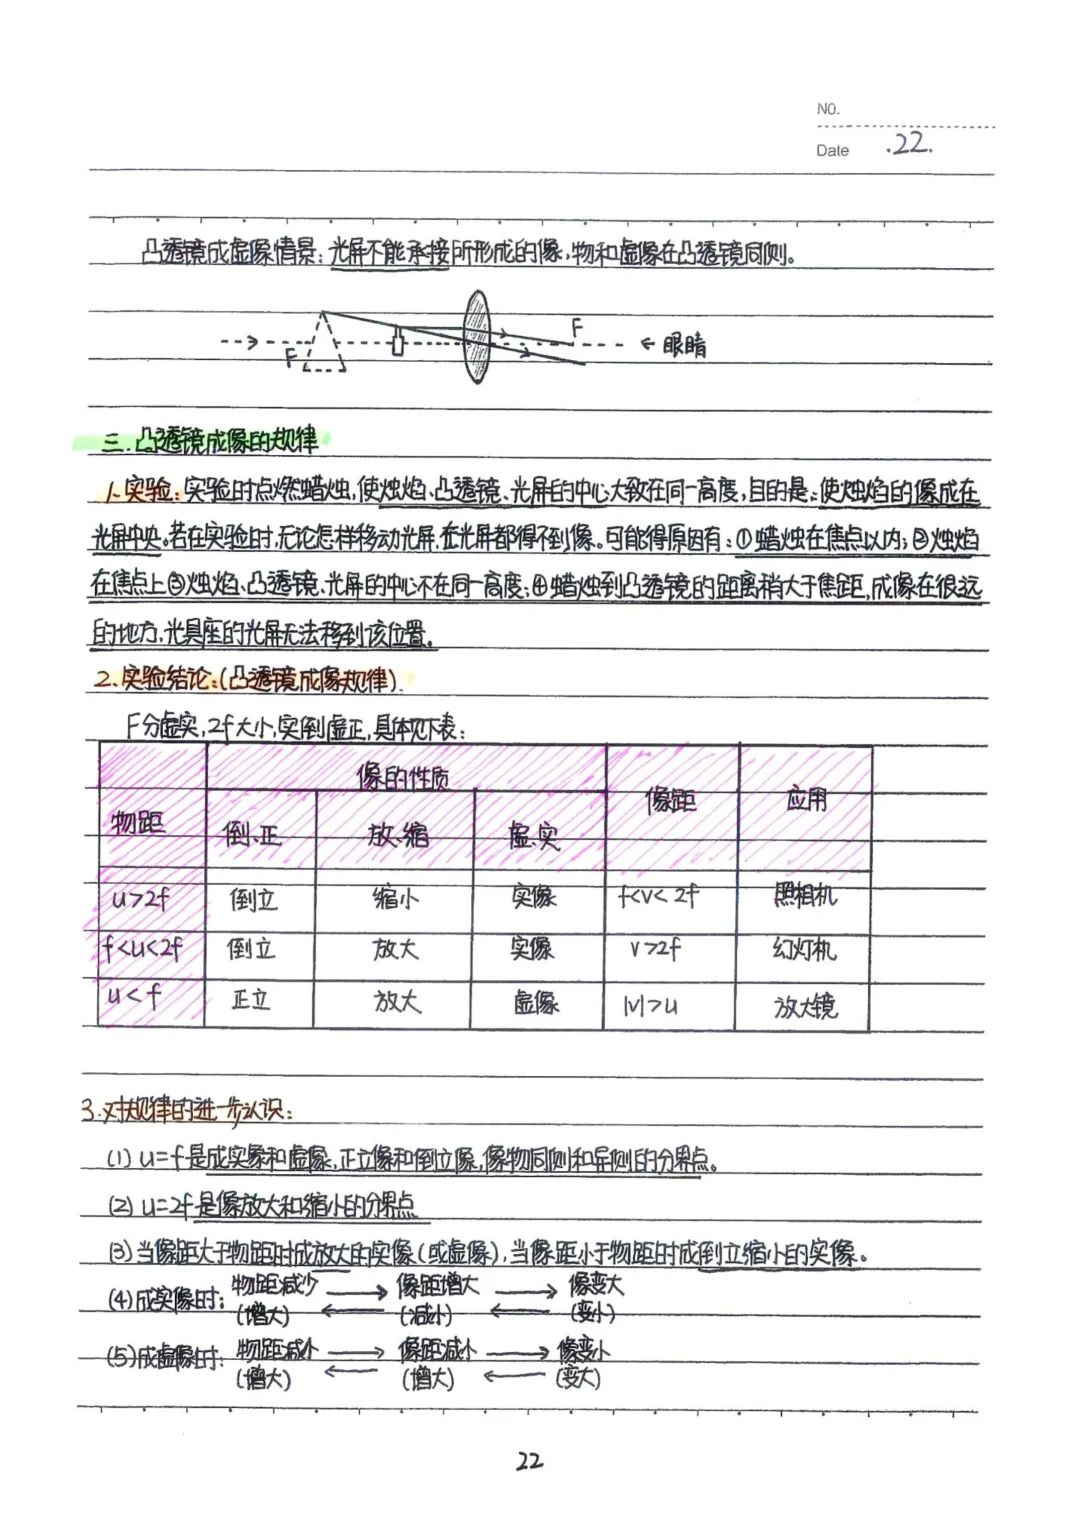 NO.
Date .22.
凸透镜成虚像情景:光屏不能承接所形成的像,物和虚像在凸透镜同侧。
F
F
←眼睛
三.凸透镜成像的规律
1.实验:实验时点燃蜡烛,使烛焰、凸透镜、光屏的中心大致在同一高度,目的是:使烛焰的像成在
光屏中央。若在实验时,无论怎样移动光屏,在光屏都得不到像。可能得原因有:①蜡烛在焦点以内;②烛焰
在焦点上③烛焰、凸透镜、光屏的中心不在同一高度;④蜡烛到凸透镜的距离稍大于焦距,成像在很远
的地方,光具座的光屏无法移到该位置。
2.实验结论:(凸透镜成像规律).
F分虚实,2f大小,实倒虚正,具体见下表:
物距 像的性质 像距 应用
倒.正 放.缩 虚.实
u>2f 倒立 缩小 实像 f<v<2f 照相机
f<u<2f 倒立 放大 实像 v>2f 幻灯机
u<f 正立 放大 虚像 |v|>u 放大镜
3.对规律的进一步认识:
(1) u=f是成实象和虚像,正立像和倒立像,像物同侧和异侧的分界点。
(2) u=2f是像放大和缩小的分界点
(3)当像距大于物距时成放大的实像(或虚像),当像距小于物距时成倒立缩小的实像。
(4)成实像时: 物距减少 → 像距增大 → 像变大
(增大) ← (减小) ← (变小)
(5)成虚像时: 物距减小 → 像距减小 → 像变小
(增大) ← (增大) ← (变大)
22